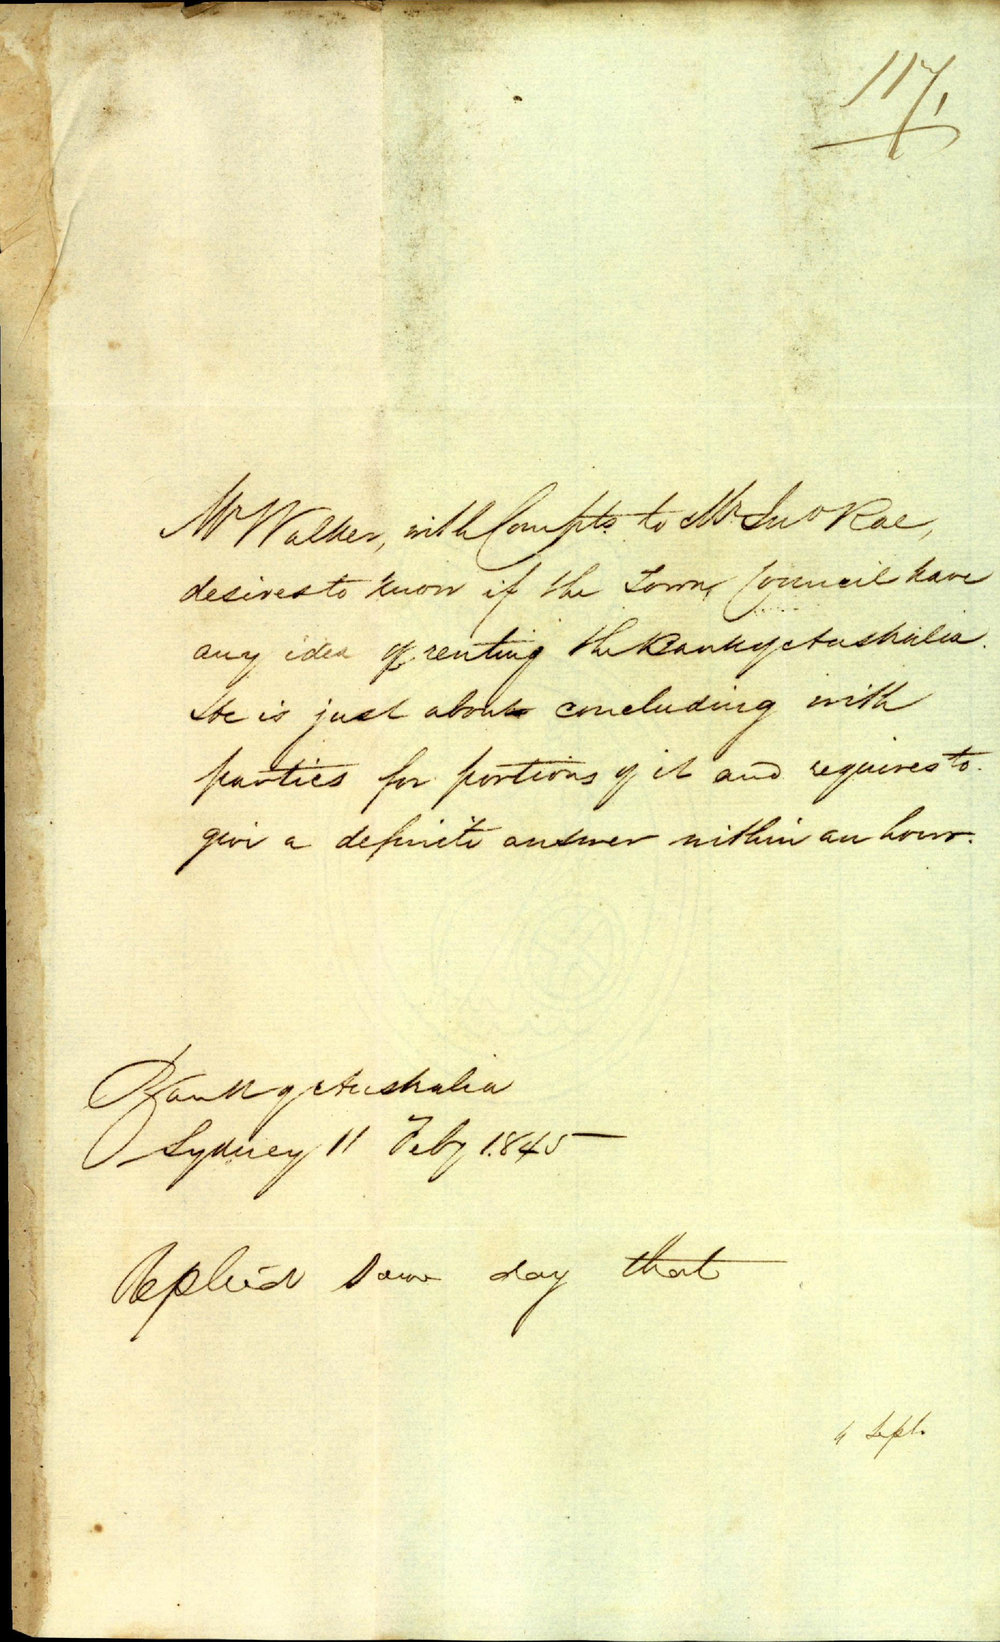 117/1
Mr Walker, with Compts. to Mr Jno Rae,
desires to know if the Town Council have
any idea of renting the Bank of Australia.
He is just about concluding with
parties for portions of it and requires to
give a definite answer within an hour.
Bank of Australia
Sydney 11 Feby 1845
Replied same day that
Sept.